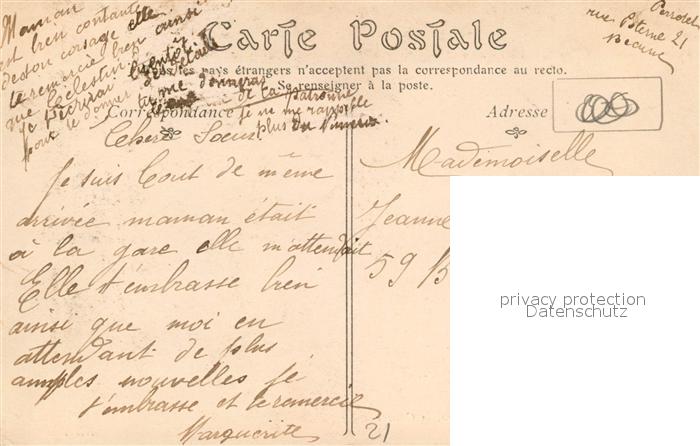 Maman
est bien contente
de son corsage elle
te remercie bien ainsi
que Célestin
Je t'écrirai bientôt
pour te donner
tu me donneras
de la patronne
je ne me rappelle
plus du numéro.
Perrotet
rue Poterne 21
Beaune
Carte Postale
Tous les pays étrangers n'acceptent pas la correspondance au recto.
Se renseigner à la poste.
Correspondance
Adresse
Chère Soeur
Je suis tout de même
arrivée maman était
à la gare elle m'attendait
Elle t'embrasse bien
ainsi que moi en
attendant de plus
amples nouvelles je
t'embrasse et te remercie
Marguerite
Mademoiselle
Jeanne
59 B
privacy protection
Datenschutz
21